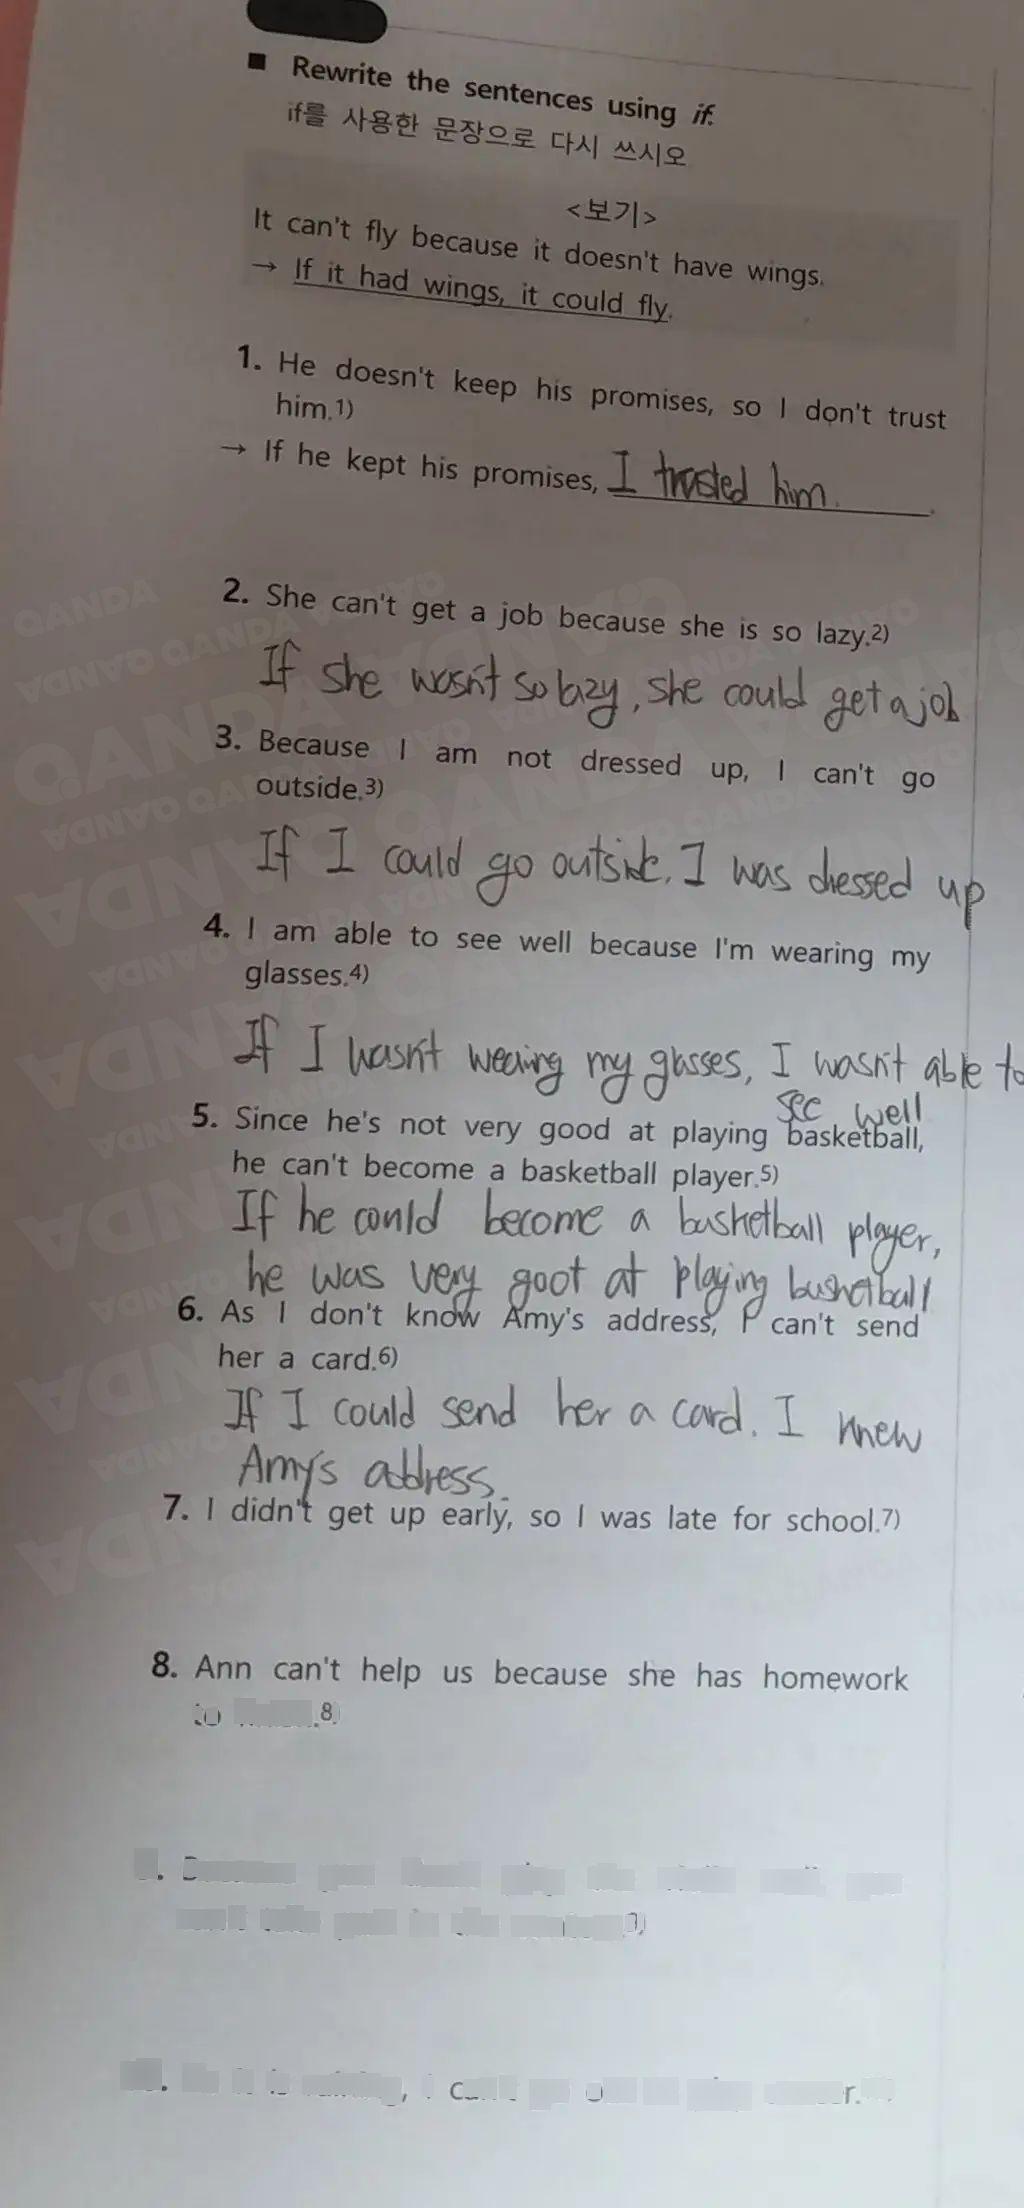 ■ Rewrite the sentences using if.
if를 사용한 문장으로 다시 쓰시오
<보기>
It can't fly because it doesn't have wings.
→ If it had wings, it could fly.
1. He doesn't keep his promises, so I don't trust
him.1)
→ If he kept his promises, I trusted him.
2. She can't get a job because she is so lazy.2)
If she wasn't so lazy, she could get a job
3. Because I am not dressed up, I can't go
outside.3)
If I could go outside. I was dressed up
4. I am able to see well because I'm wearing my
glasses.4)
If I wasn't wearing my glasses, I wasn't able to
see well
5. Since he's not very good at playing basketball,
he can't become a basketball player.5)
If he could become a basketball player,
he was very goot at playing basketball
6. As I don't know Amy's address, I can't send
her a card.6)
If I could send her a card. I knew
Amy's address.
7. I didn't get up early, so I was late for school.7)
8. Ann can't help us because she has homework
QANDA